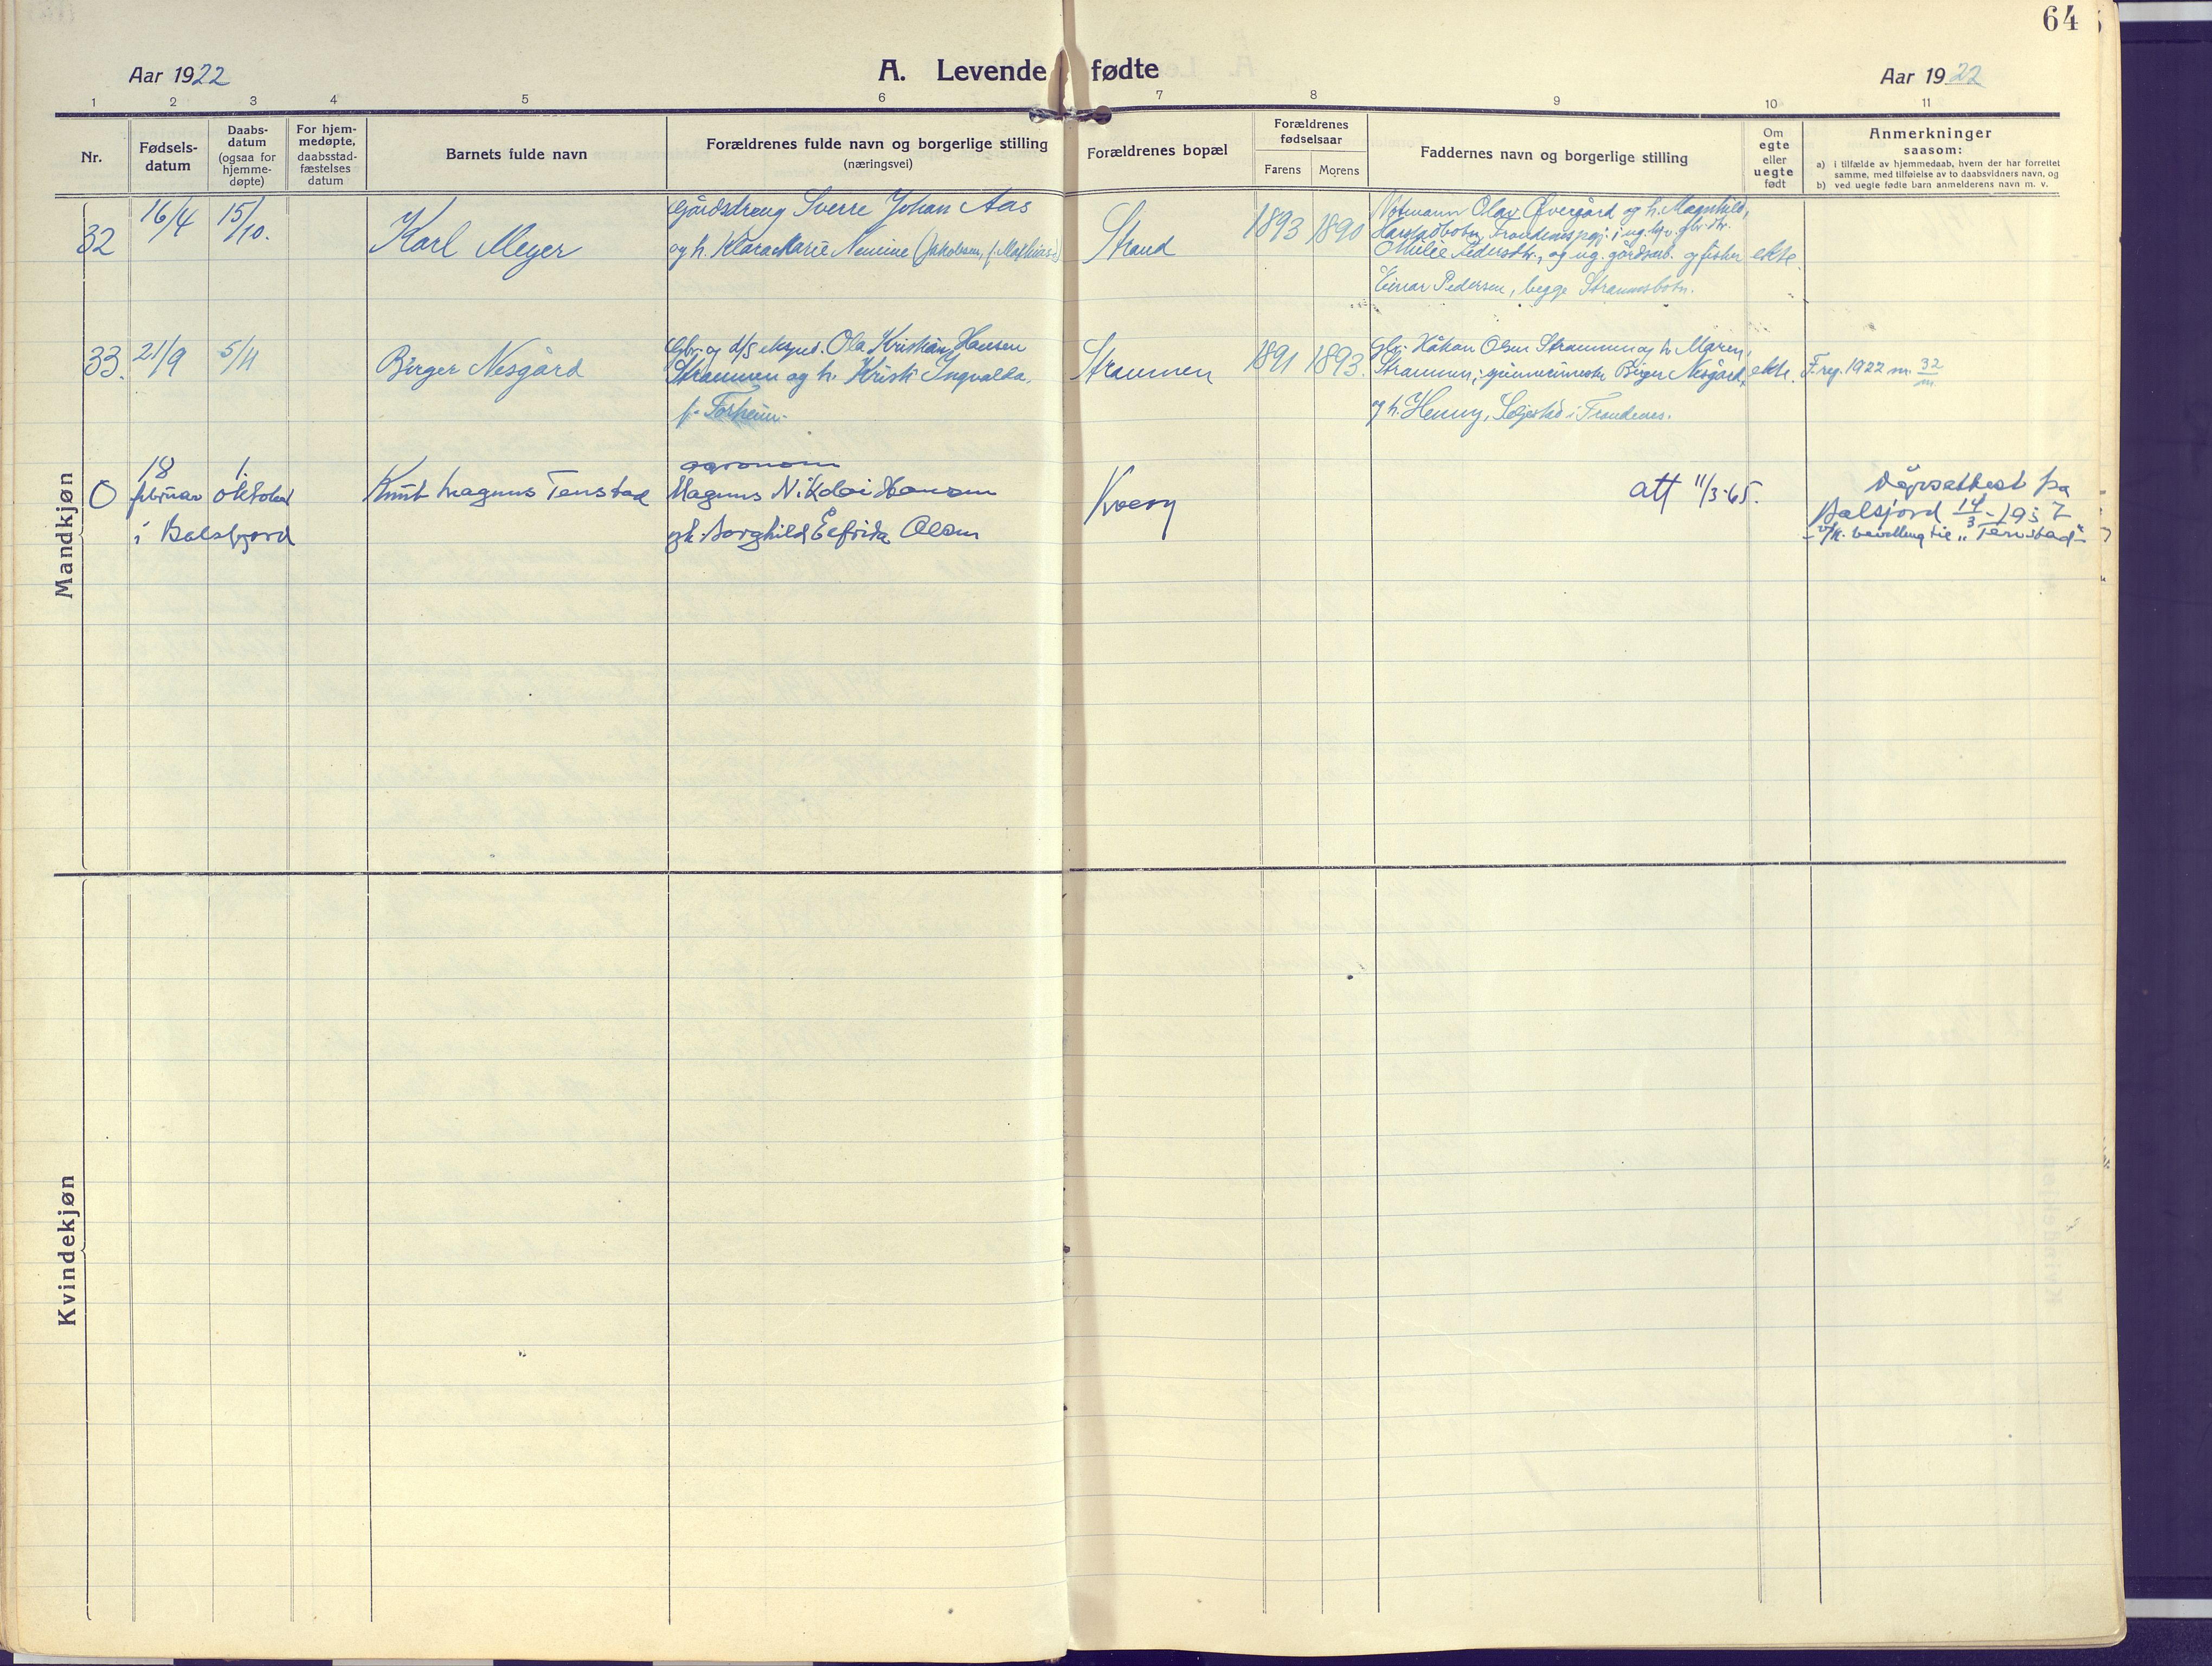 64
Aar 1922
A. Levende fødte
Aar 1922
1 2 3 4 5 6 7 8 9 10 11
Nr.
Fødsels-
datum
Daabs-
datum
(ogsaa for
hjemme-
døpte)
For hjem-
medøpte,
daabsstad-
fæstelses
datum
Barnets fulde navn
Forældrenes fulde navn og borgerlige stilling
(næringsvei)
Forældrenes bopæl
Forældrenes
fødselsaar
Farens Morens
Faddernes navn og borgerlige stilling
Om
egte
eller
uegte
født
Anmerkninger
saasom:
a) i tilfælde av hjemmedaab, hvem der har forrettet
samme, med tilføielse av to daabsvidners navn, og
b) ved uegte fødte barn anmelderens navn m. v.
Mandkjøn
32
16/4
15/10.
Karl Meyer
Gårdsdreng Sverre Johan Aas
og h. Klara Marie Nemine (Jakobsen, f. Mathias)
Strand
1893 1890
Notmann Olav Øvergård og h. Magnhild,
Harstadbotn, Trondenes pgj.; ug.
Othilie Pedersdtr., og ug. gårdsarb. og fisker
Einar Pedersen, begge Straumsbotn.
ekte.
33.
21/9
5/11
Birger Nesgård
Gbr. og d/s eksped. Ola Kristian Hansen
Straumen og h. Kristi Ingvalda,
f. Forheim.
Straumen
1891 1893.
Gbr. Håkon Olsen Straumen og h. Maren,
Straumen; Birger Nesgård,
og h. Henny, Seljestad i Trondenes.
ekte.
F.reg. 1922 nr. 32/m.
0
18
februar
1.
oktober
i Balsfjord
Knut Magnus Tenstad
agronom
Magnus Nikolai Hansen
og h. Borghild Elfrida Olsen
Kvæøy
att 11/3-65.
Dåpsattest fra
Balsfjord 14/3-1957
bevilling til „Tennstad"
Kvindekjøn